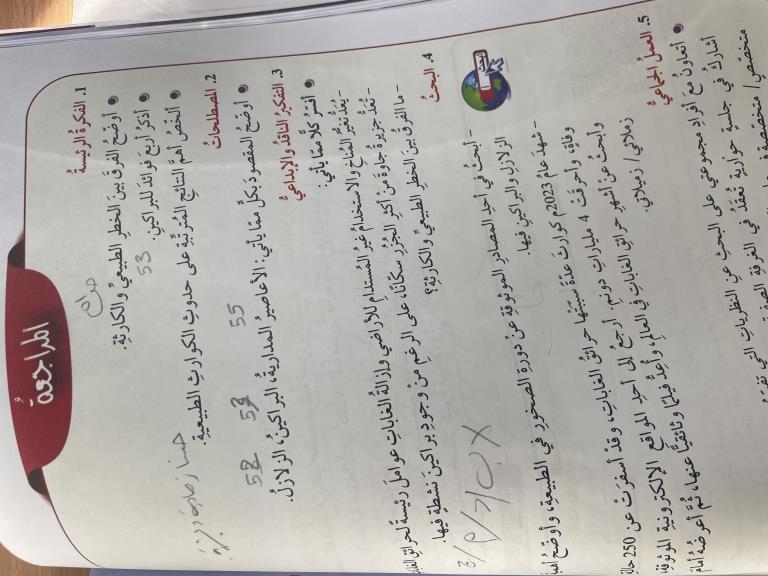 المراجعة
1. الفكرة الرئيسة
• أوضح الفرق بين الخطر الطبيعي والكارثة.
• أذكر أربع فوائد للبراكين. 53
• ألخص أهم النتائج المترتبة على حدوث الكوارث الطبيعية.
2. المصطلحات
55 53 52
• أوضح المقصود بكل مما يأتي: الأعاصير المدارية، البراكين، الزلازل.
3. التفكير الناقد والإبداعي
• أفسر كلا مما يأتي:
- يعد تغير المناخ والاستخدام غير المستدام للأراضي وإزالة الغابات عوامل رئيسة لحرائق
- تعد جزيرة جاوة من أكثر الجزر سكانا، على الرغم من وجود براكين نشطة فيها.
- ما الفرق بين الخطر الطبيعي والكارثة؟
4. البحث
أبحث
- أبحث في أحد المصادر الموثوقة عن دورة الصخور في الطبيعة، وأوضح
الزلازل والبراكين فيها.
- شهد عام 2023م كوارث عدة سببتها حرائق الغابات، وقد أسفرت عن 250
وفاة، وأحرقت 4 مليارات دونم. أرجع إلى أحد المواقع الإلكترونية الموثوقة،
وأبحث عن أشهر حرائق الغابات في العالم، وأعد فيلما وثائقيا عنها، ثم أعرضه أمام
زملائي/ زميلاتي.
5. العمل الجماعي
• أتعاون مع أفراد مجموعتي على البحث عن النظريات التي
أشارك في جلسة حوارية تعقد في الغرفة
متخصص/ متخصصة